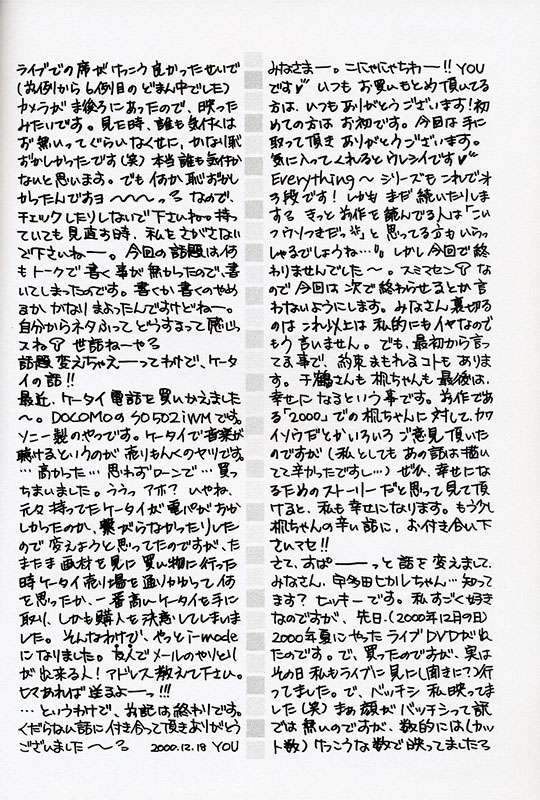 みなさまー。こにゃにゃちわー!! YOU
です♥ いつも お買いもとめ 頂いてる
方は、いつもありがとうございます!初
めての方は お初です。今回は手に
取って頂き ありがとうございます。
気に入ってくれると ウレシイです♥
Everything〜 シリーズも これで
3段です! しかも まだ 続いたりしま
する きっと 前作を 読んでる人は「こいつ
ウソつきだっ」と 思ってる方も いらっ
しゃるでしょうね…。しかし 今回で終
わりませんでした〜。スミマセン な
ので 今回は 次で 終わらせるとか 言
わないようにします。みなさん 裏切る
のは これ以上は 私的にも イヤなので
もう 言いません。でも、最初から 言っ
てる事で、約束 まもれるコトも ありま
す。千鶴さんも 梶ちゃんも 最後は、
幸せに なる という 事です。前作であ
る「2000」での 梶ちゃんに 対して、カワ
イソウだとか いろいろ ご意見 頂いた
のですが (私としても あの話は 描い
てて 辛かったですし…) ぜひ、幸せにな
るための ストーリーだと 思って 見て頂
けると、私も 幸せになります。もう少し
梶ちゃんの 辛い話に、お付き合い下
さいマセ!!
さて、すぱーーーっと 話を 変えまして、
みなさん、宇多田ヒカルちゃん… 知って
ます? ヒッキーです。私 すごく 好き
なのですが、先日、(2000年12月9日)
2000年夏に やった ライブ DVDが 出
たのです。で、買ったのですが、実は
その日 私も ライブに 見に(聞きに?)行
ってました。で、バッチシ 私 映ってま
した(笑) まぁ 顔が バッチシって 訳
では 無いのですが、数的には (カッ
ト数) けっこうな 数で 映ってましたっ
ライブでの 席が けっこう 良かったせいで
(前例から 6例目の どまん中でした)
カメラが ま後ろに あったので、映った
みたいです。見た時、誰も 気付くは
ず 無いって ぐらいなくせに、かなり 恥
ずかしかったです(笑) 本当 誰も 気付か
ないと 思います。でも 何か 恥ずかし
かったんですヨ〜〜〜っ なので、
チェックしたりしないで 下さいね。持っ
ていても 見直す時、私を さがさない
で下さいねー。今回の 話題は 何
も トークで 書く 事が 無かったので、書
いてしまったのです。書くか 書くのやめ
るか かなり まよったんですけどねー。
自分から ネタふって どうするって 感じっ
スね 世話ねーやっ
話題 変えちゃえーってわけで、ケータ
イの話!!
最近、ケータイ 電話を 買いかえました
〜。DOCOMOの SO502iWM です。
ソニー製の やつです。ケータイで 音楽が
聴けるというのが 売りもんくの ヤツです
…高かった… 思わず ローンで… 買っ
ちまいました。ううっ アホ? いやね、
元々 持ってた ケータイが 電パが おか
しかったのか、繋がらなかったりした
ので 変えようと 思ってたのですが、た
またま 画材を 見に 買い物に 行った
時 ケータイ 売り場を 通りかかって 何
を思ったか、一番 高い ケータイを 手に
取り、しかも 購入を 決意してしまいま
した。そんなわけで、やっと i-mode
に なりました。友人で メールのやりとり
が 出来る人! アドレス 教えて 下さい。
ヒマあれば 送るよーっ!!!
…というわけで、お記は 終わりです。
くだらない話に 付き合って 頂き ありがとう
ございました〜っ 2000.12.18 YOU